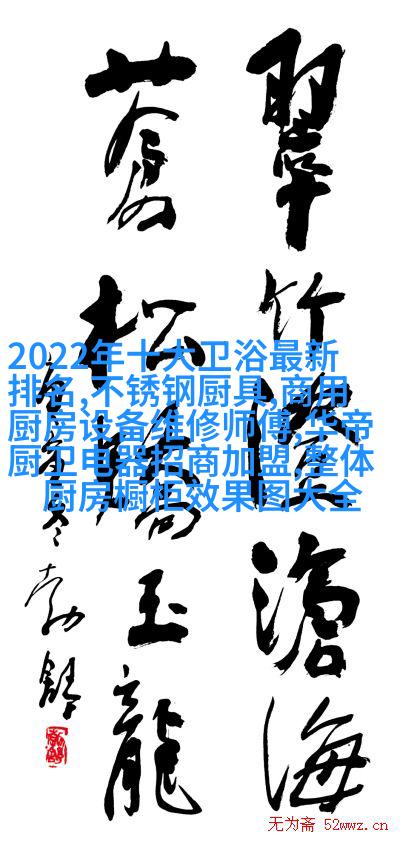 翠竹滄海
蒼松玉龍
勃舒
2022年十大卫浴最新
排名,不锈钢厨具,商用
厨房设备维修师傅,华帝
厨卫电器招商加盟,整体
厨房橱柜效果图大全
无为斋 52wwz.cn